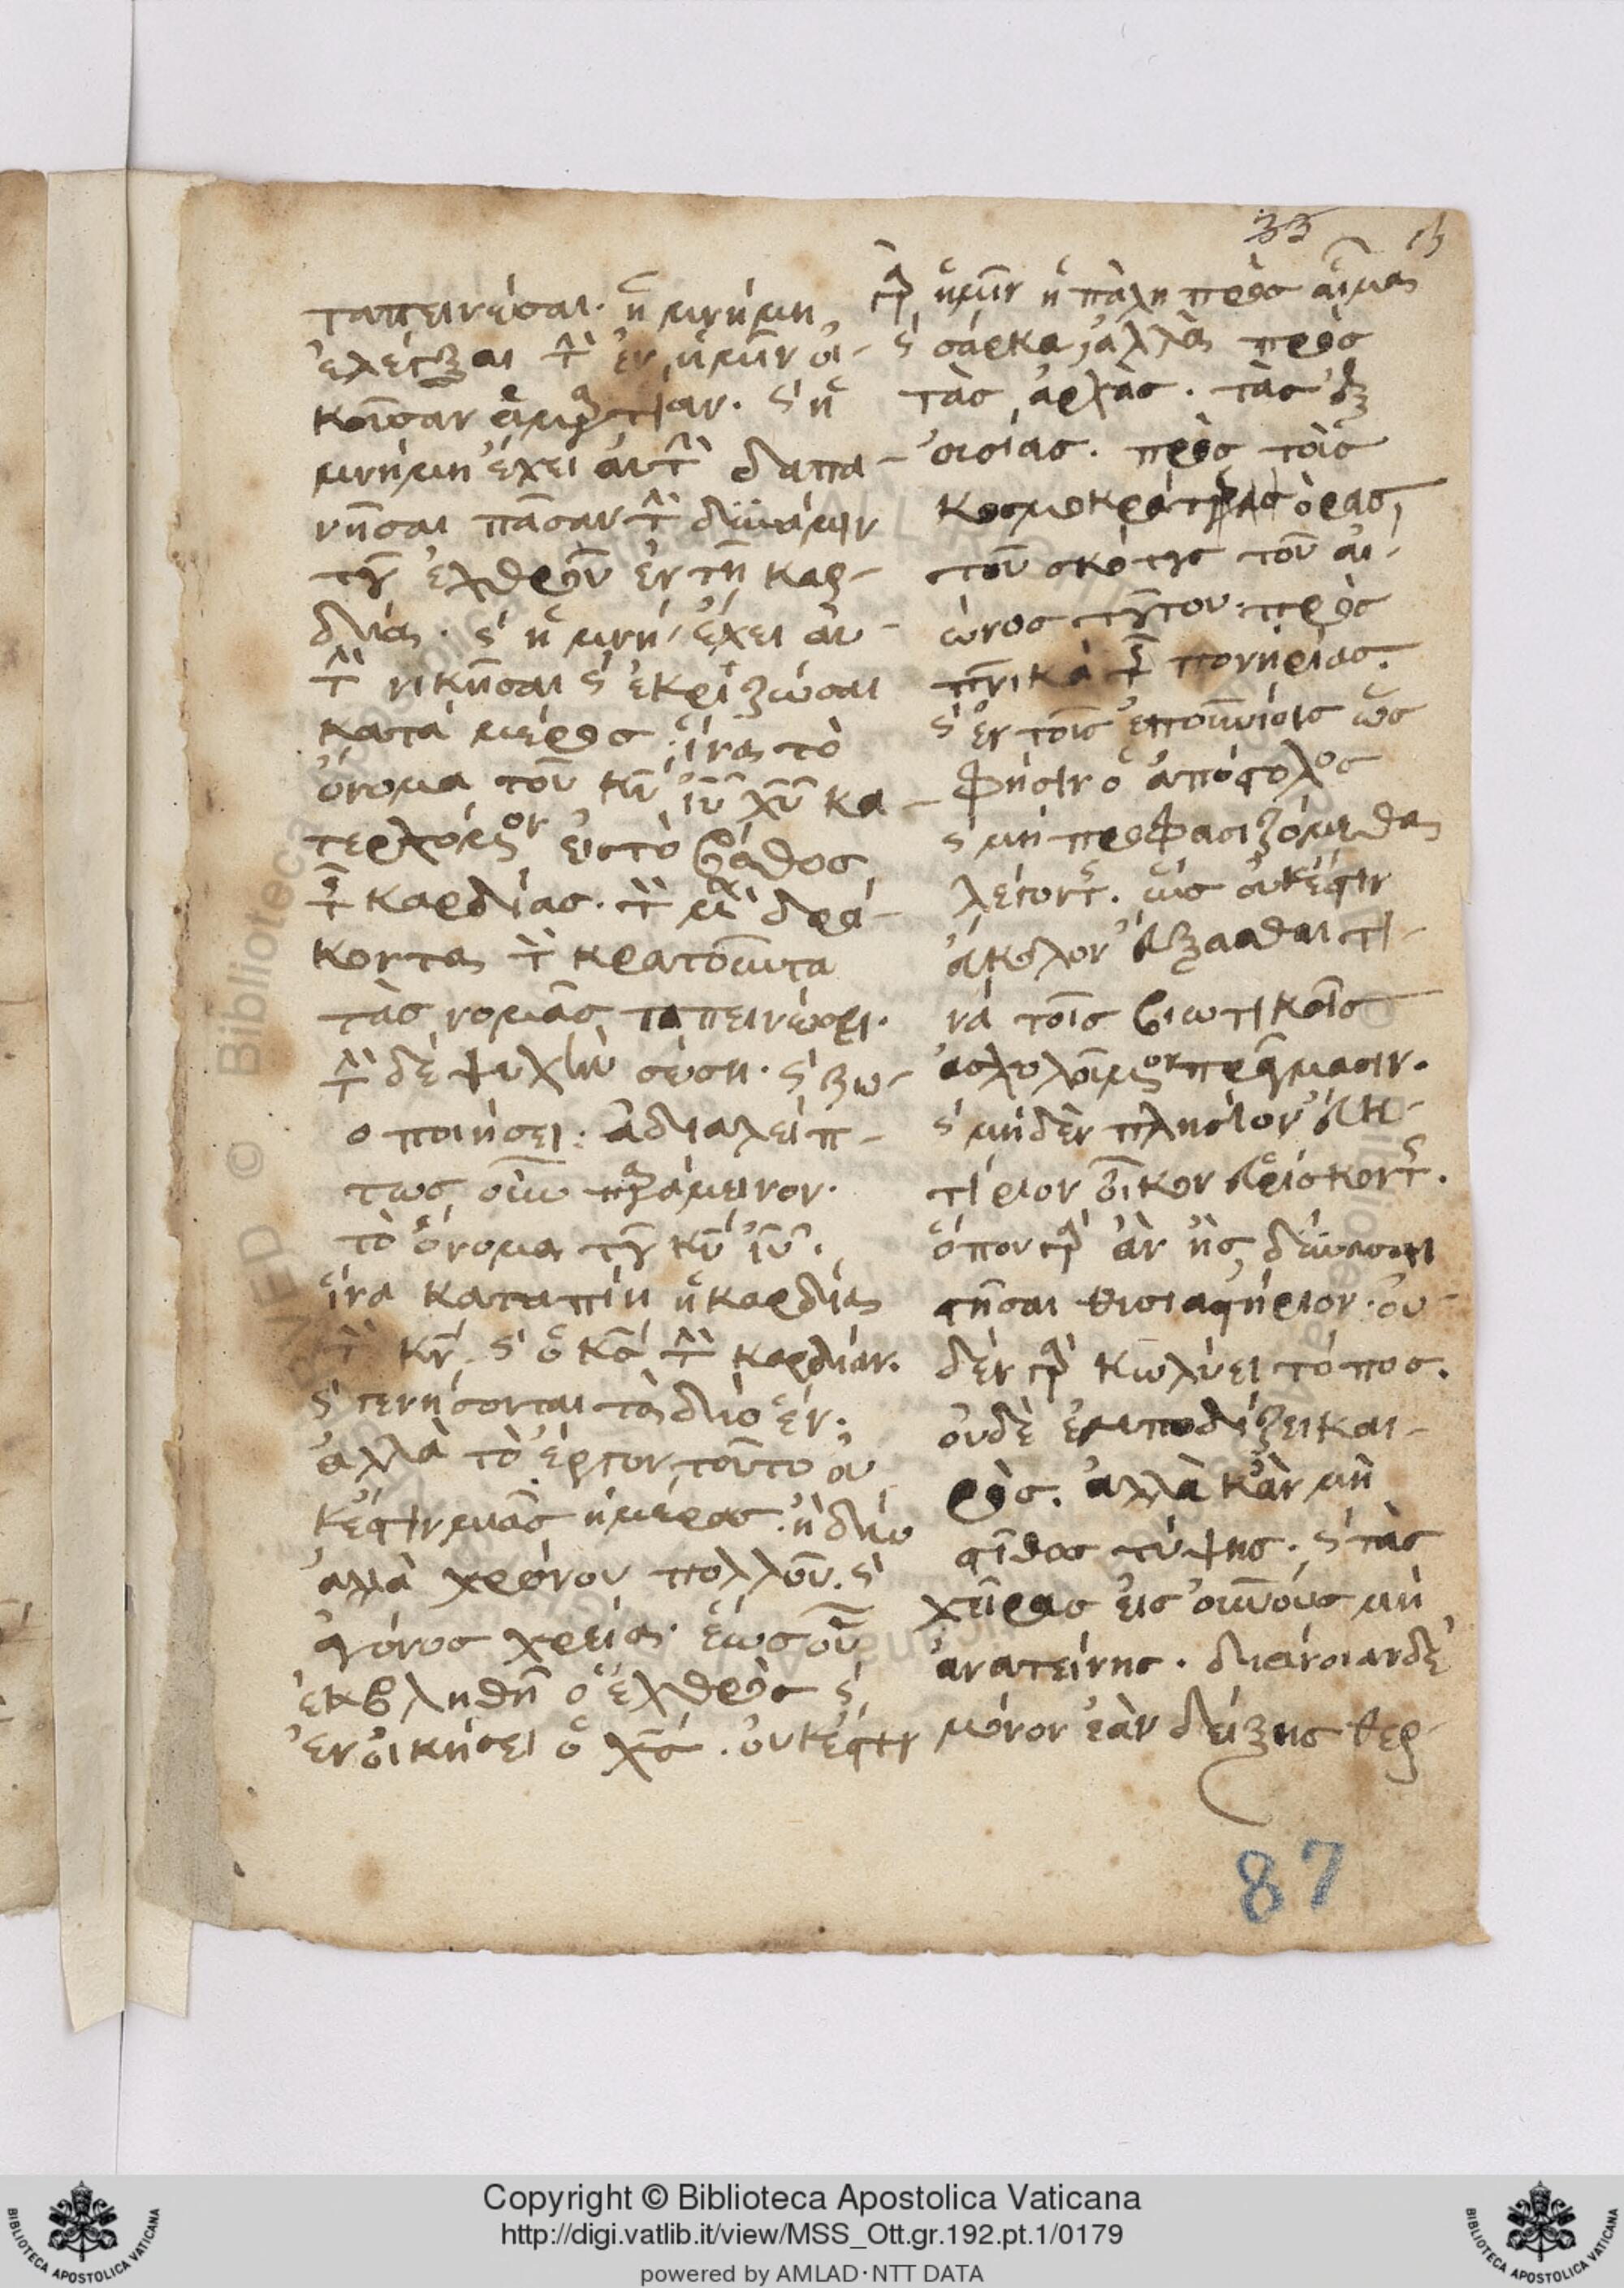 33
ταπεινῶσαι· ἡ μνήμη
ἐλέγξαι τὴν ἐν ἡμῖν οἰ-
κοῦσαν ἁμαρτίαν. καὶ ἡ
μνήμη ἔχει αὐτὴν δαπα-
νῆσαι πᾶσαν τὴν δύναμιν
τοῦ ἐχθροῦ ἐν τῇ καρ-
δίᾳ. καὶ ἡ μνή ἔχει αὐ-
τὴν νικῆσαι καὶ ἐκριζῶσαι
κατὰ μέρος. ἵνα τὸ
ὄνομα τοῦ κυ ιυ χυ κα-
τερχόμενον εἰς τὸ βάθος
τῆς καρδίας. τὸν μὲν δρά-
κοντα τὸν κρατοῦντα
τὰς νομὰς ταπεινώσει.
τὴν δὲ ψυχὴν σώσῃ. καὶ ζω-
οποιήσει. ἀδιαλείπ-
τως οὖν παράμεινον.
τὸ ὄνομα τοῦ κυ ιυ.
ἵνα καταπίῃ ἡ καρδία
τὸν κν καὶ ὁ κς τὴν καρδίαν.
καὶ γενήσονται τὰ δύο ἕν.
ἀλλὰ τὸ ἔργον τοῦτο οὐ
κἔστιν μιᾶς ἡμέρας ἢ δύο
ἀλλὰ χρόνου πολλοῦ. καὶ
ἀγόνος χρεία. ἕως οὗ
ἐκβληθῇ ὁ ἐχθρὸς καὶ
ἐνοικήσει ὁ χς. οὐκἔστιν
γὰρ ἡμῖν ἡ πάλη πρὸς αἷμα
καὶ σάρκα, ἀλλὰ πρὸς
τὰς ἀρχάς. τὰς ἐξ
ουσίας. πρὸς τοὺς
κοσμοκράτορας
τοῦ σκότους τοῦ αἰ-
ῶνος τούτου· πρὸς
πνικὰ τῆς πονηρίας.
καὶ ἐν τοῖς ἐπουνίοις ὥς
φησιν ὁ ἀπόστολος
καὶ μὴ προφασιζόμεθα
λέγοντες. ὡς οὐκἔστιν
εὔκολον εὔξασθαι τι-
νά τοῖς βιωτικοῖς
ἀσχολούμενον πράγμασιν.
καὶ μηδὲν πλησίον εὐκ-
τίριον οἶκον εὑρίσκοντες.
ὅπου γὰρ ἂν ᾖς δύνασαι
στῆσαι θυσιαστήριον. οὐ-
δὲν γὰρ κωλύει τόπος.
οὐδὲ ἐμποδίζει και-
ρός. ἀλλὰ κἂν μὴ
στῆθος τύψῃς. καὶ τὰς
χεῖρας εἰς οὐνοὺς μὴ
ἀνατείνῃς. διάνοιαν δὲ
μόνον ἐὰν δείξῃς θερ-
87
Copyright © Biblioteca Apostolica Vaticana
http://digi.vatlib.it/view/MSS_Ott.gr.192.pt.1/0179
powered by AMLAD·NTT DATA
BIBLIOTECA APOSTOLICA VATICANA
BIBLIOTECA APOSTOLICA VATICANA